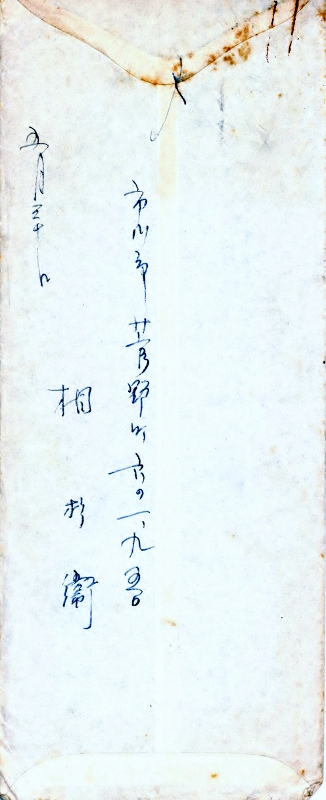 市川市菅野町六の一、九五
相杉衛
五月三十日